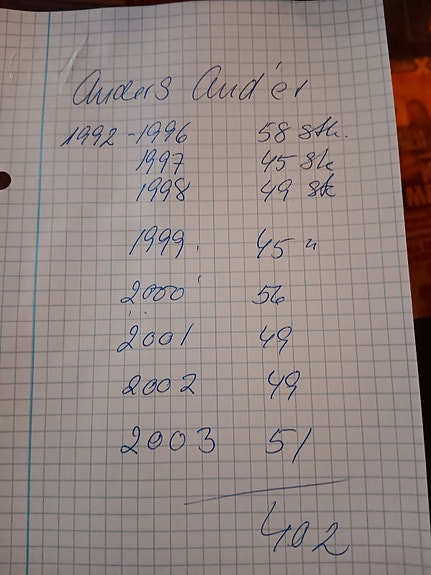 Anders And'er
1992-1996 58 stk.
1997 45 stk
1998 49 stk
1999. 45 "
2000 56
2001 49
2002 49
2003 51
402